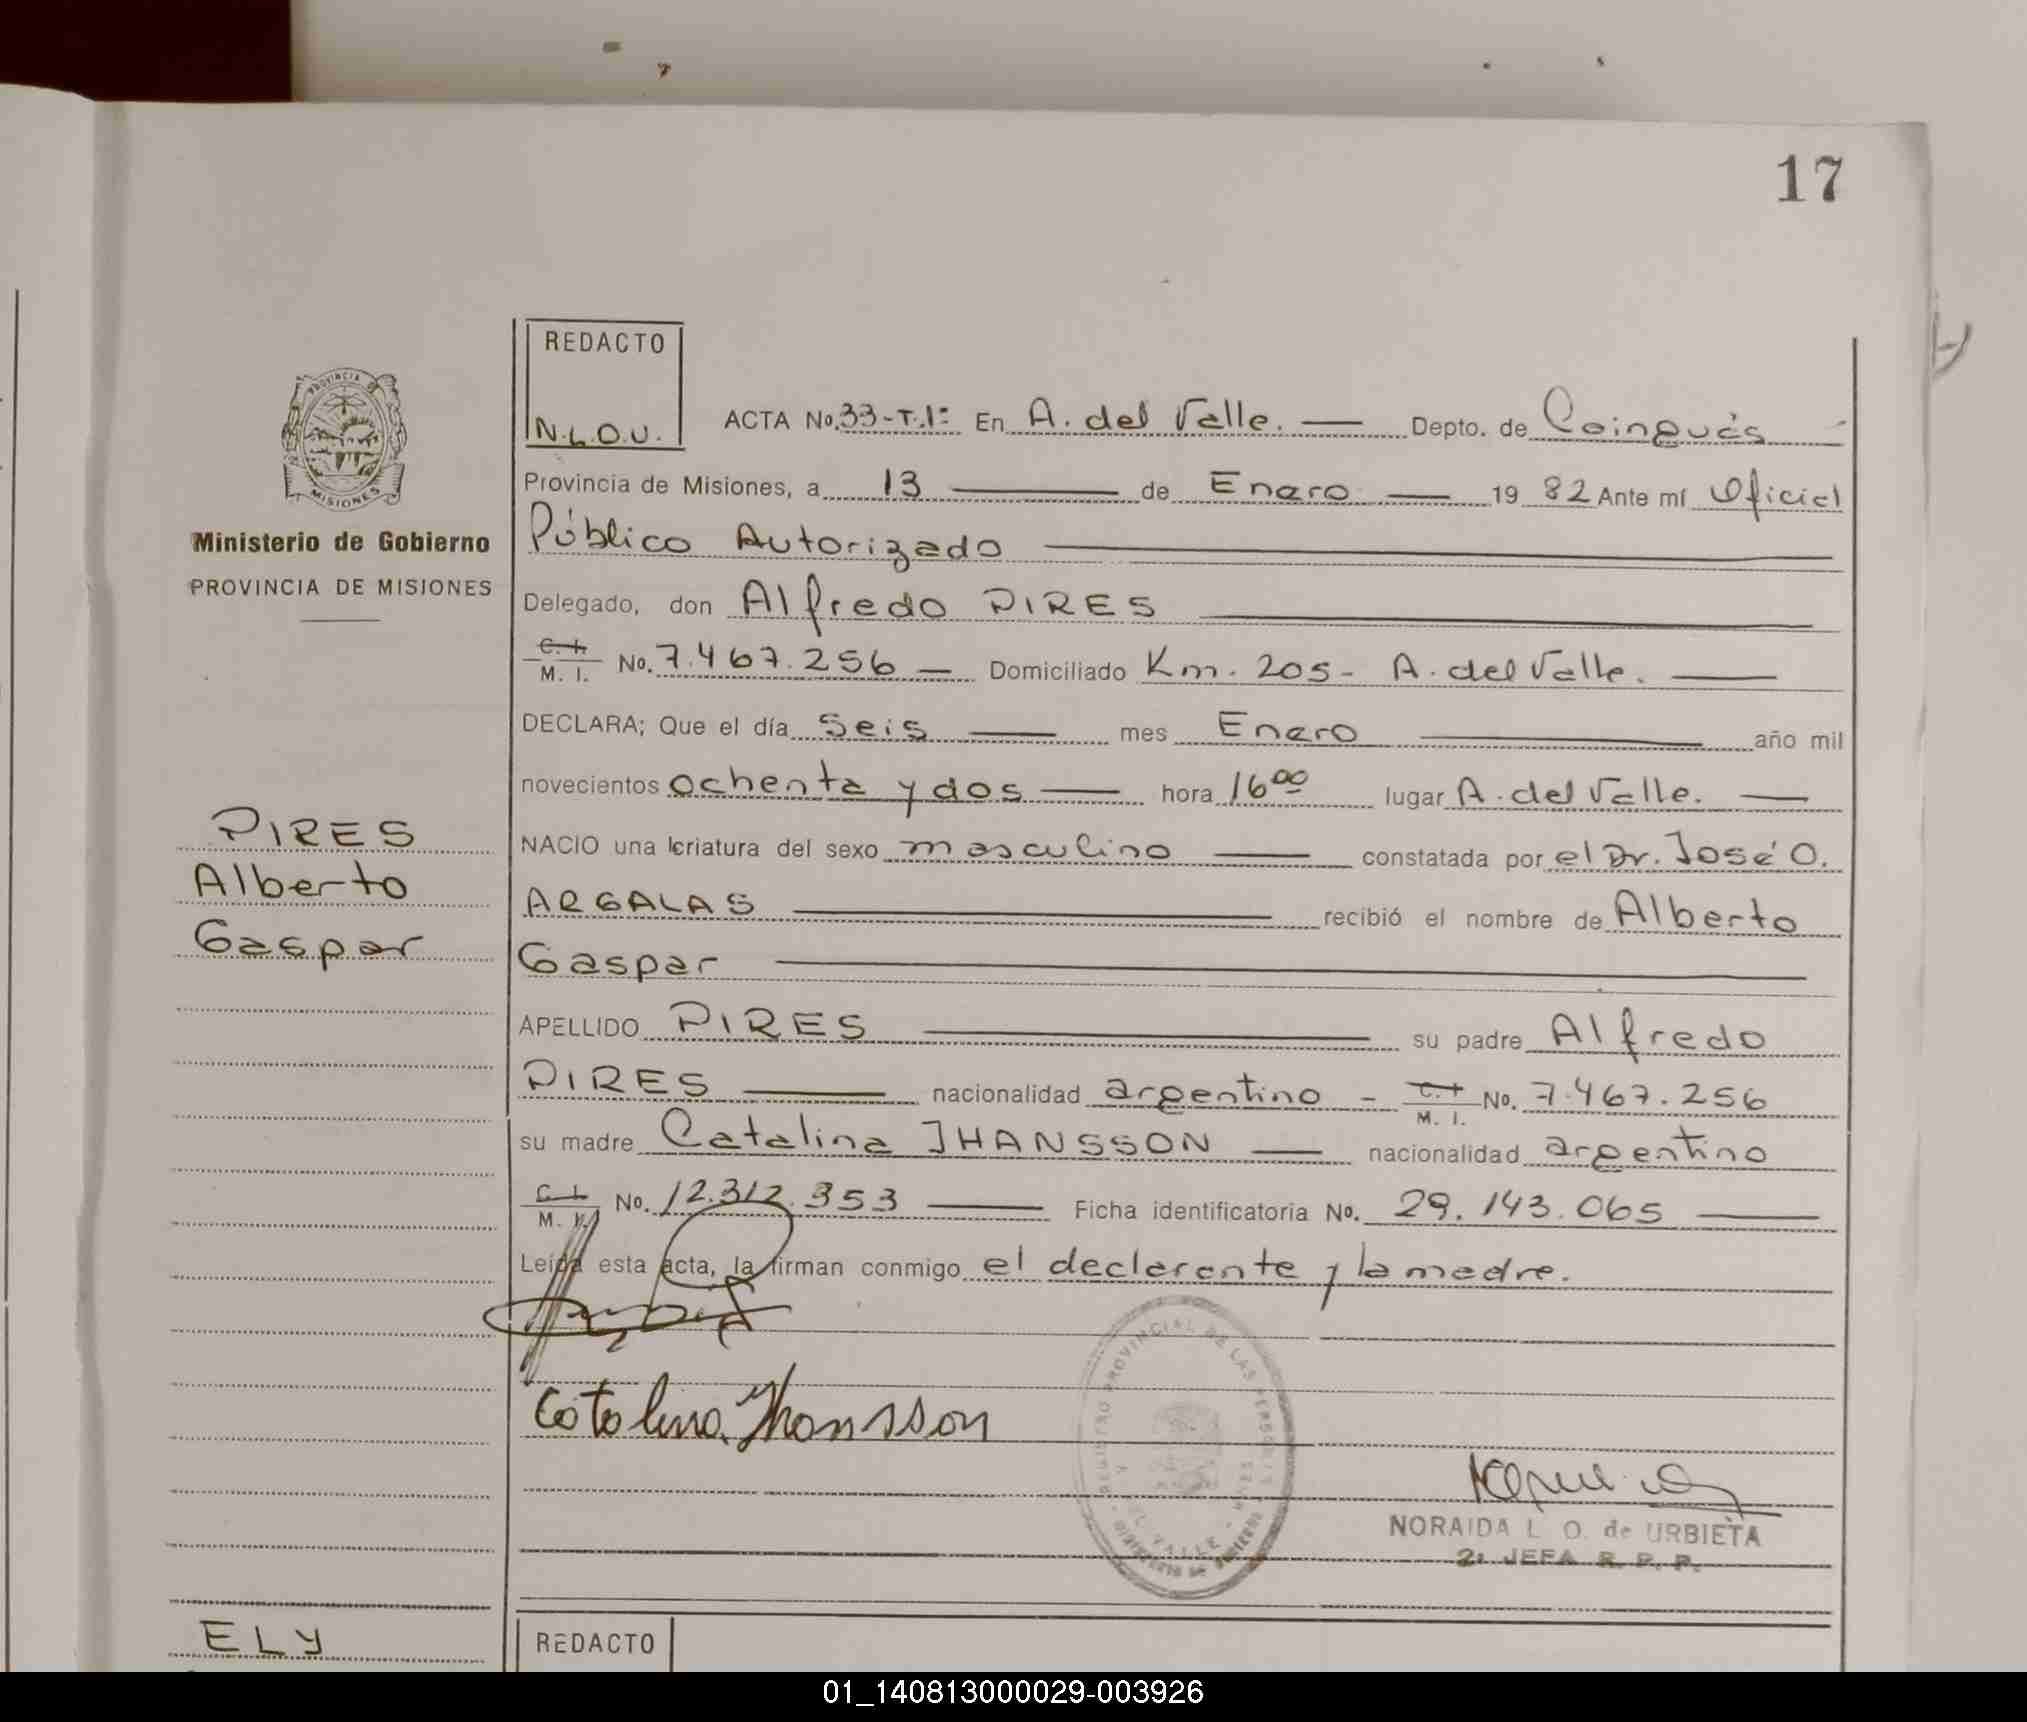 17
REDACTO
N.L.O.U.
ACTA No. 33-T.1º En A. del Valle. Depto. de Cainguás
Provincia de Misiones, a 13 de Enero 19 82 Ante mí Oficial
Público Autorizado
Delegado, don Alfredo PIRES
C. I. M. I. No. 7.467.256 Domiciliado Km. 205 - A. del Valle.
DECLARA; Que el día Seis mes Enero año mil
novecientos ochenta y dos hora 16 00 lugar A. del Valle.
NACIO una criatura del sexo masculino constatada por el Dr. José O.
ARGALAS recibió el nombre de Alberto
Gaspar
APELLIDO PIRES su padre Alfredo
PIRES nacionalidad argentino - C. I. M. I. No. 7.467.256
su madre Catalina JHANSSON nacionalidad argentino
C. I. M. I. No. 12.312.353 Ficha identificatoria No. 29.143.065
Leída esta acta, la firman conmigo el declarante y la madre.
Catalina Jhansson
NORAIDA L. O. de URBIETA
2ª JEFA R. P. P.
REGISTRO PROVINCIAL DE LAS PERSONAS
DEL VALLE - MNES
MINISTERIO DE GOBIERNO
PROVINCIA DE
MISIONES
Ministerio de Gobierno
PROVINCIA DE MISIONES
PIRES
Alberto
Gaspar
ELY
REDACTO
01_140813000029-003926